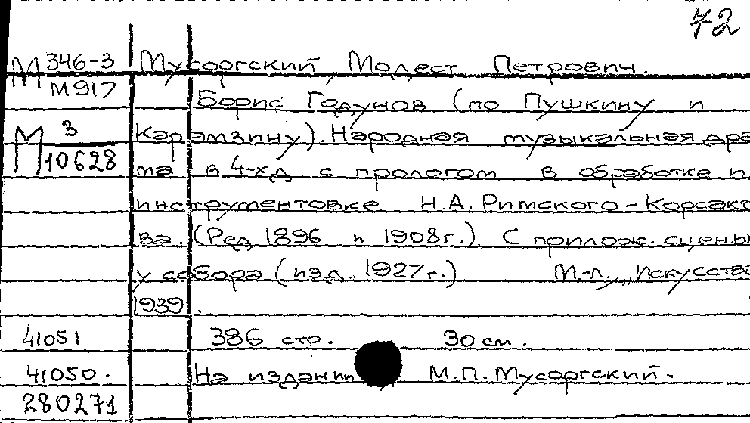 72
М 346-3 Мусоргский, Модест Петрович.
М917 Борис Годунов (по Пушкину и
М 3 Карамзину). Народная музыкальная дра
10628 ма в 4-х д. с прологом в обработке и
инструментовке Н.А. Римского-Корсако
ва. (Ред. 1896 и 1908 г.). С прилож. сцены
у собора (изд. 1927 г.) М-л., Искусство
1939.
41051 386 стр. 30 см.
41050. На издании М.П. Мусоргский.
280271